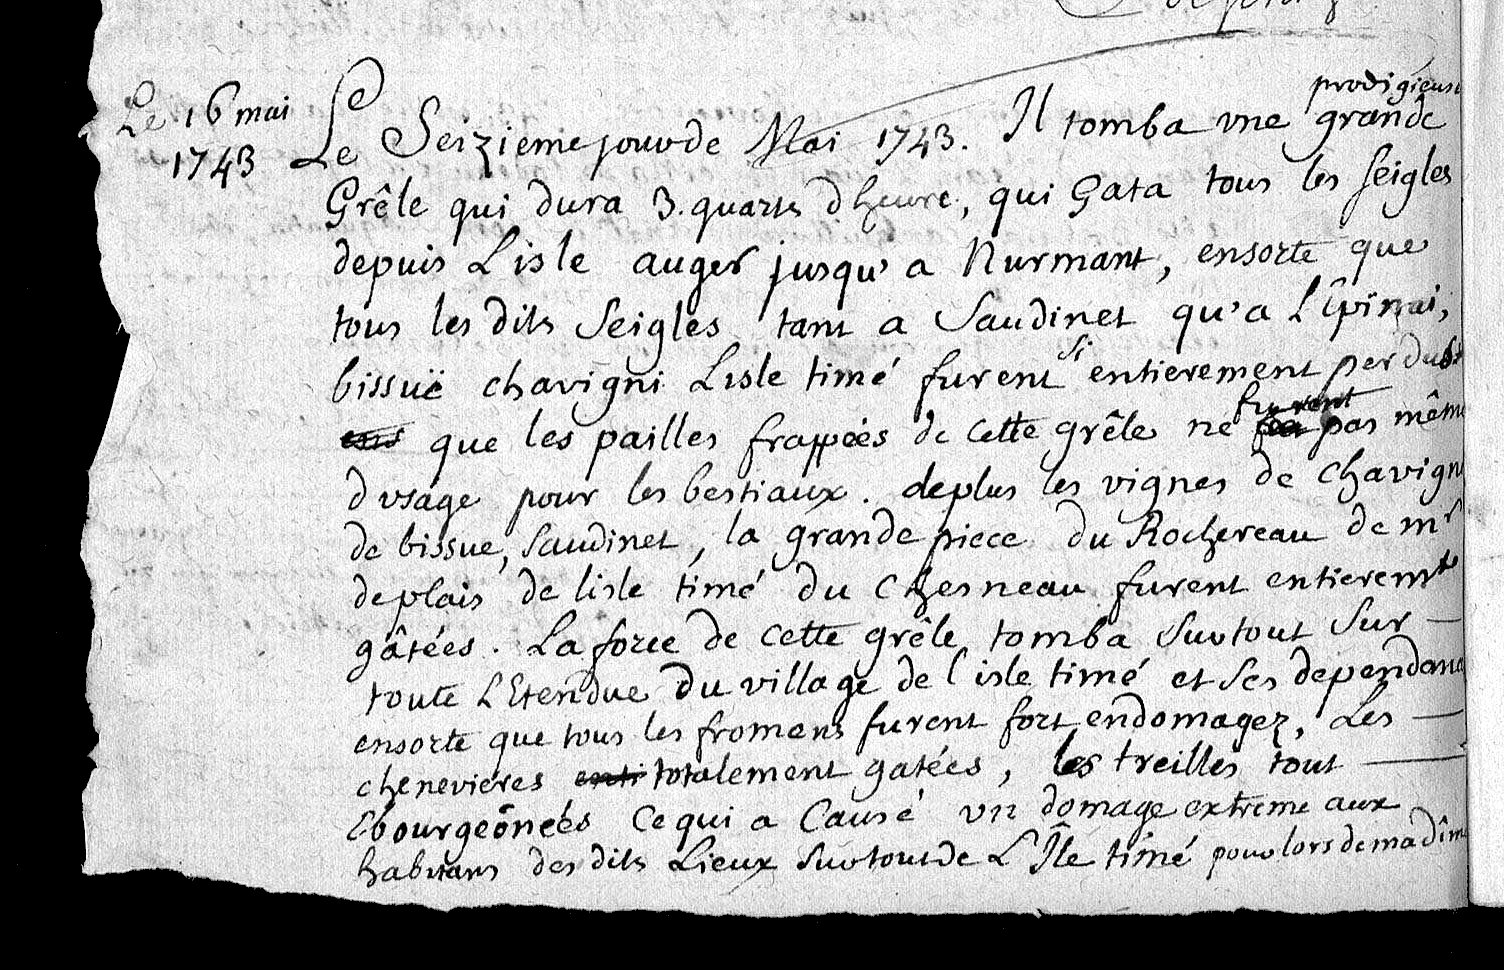 Le 16 mai
1743
prodigieuse
Le Seizieme jour de Mai 1743. Il tomba une grande
Grêle qui dura 3. quarts dheure, qui Gata tous les seigles
depuis Lisle auger jusqu'a Nurmant, ensorte que
tous les dits Seigles tant a Saudinet qu'a l'Epinai,
bissuë chavigni Lisle timé furent si entierement perdus
que les pailles frappées de cette grêle ne furent pas même
d usage pour les bestiaux. deplus les vignes de Chavigni
de bissue, Saudinet, la grande piece du Rochereau de mr
deplais de lisle timé du Chesneau furent entieremt
gâtées. La force de cette grêle tomba surtout sur
toute l'Etendue du village de l'isle timé et ses dependanc
ensorte que tous les fromens furent fort endomagez, Les
chenevieres totalement gatées, les treilles tout
Ebourgeonéés Ce qui a Causé un domage extreme aux
habitans des dits Lieux surtout de L'Île timé pour lors de ma dîme